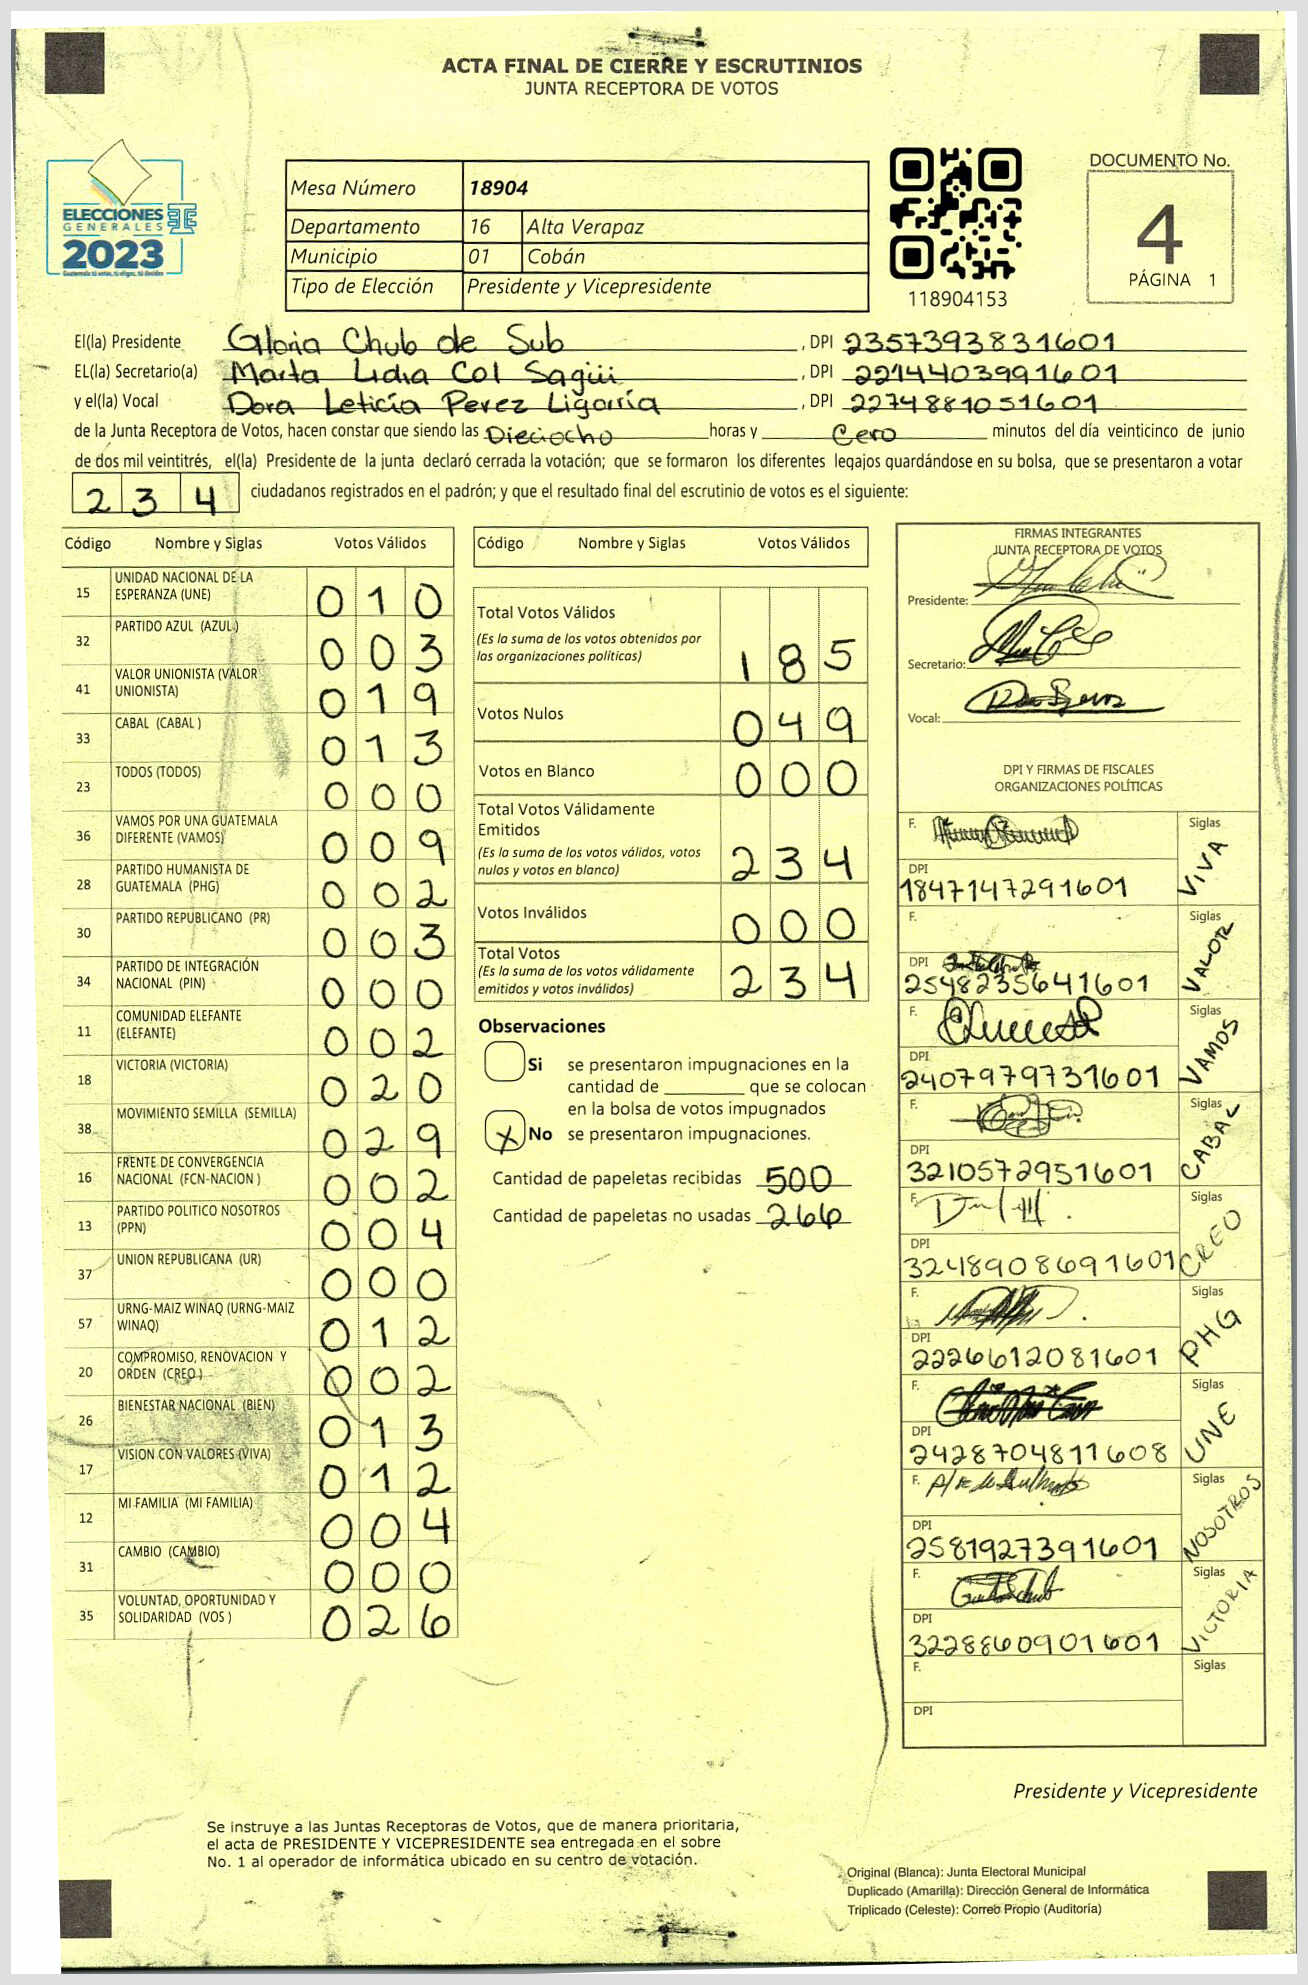 ACTA FINAL DE CIERRE Y ESCRUTINIOS
JUNTA RECEPTORA DE VOTOS
ELECCIONES
GENERALES
2023
Guatemala tú votas, tú eliges, tú decides
Mesa Número 18904
Departamento 16 Alta Verapaz
Municipio 01 Cobán
Tipo de Elección Presidente y Vicepresidente
118904153
DOCUMENTO No.
4
PÁGINA 1
El(la) Presidente Gloria Chub de Sub, DPI 2357393831601
EL(la) Secretario(a) Marta Lidia Col Sagüi, DPI 2214403991601
y el(la) Vocal Dora Leticia Perez Ligorría, DPI 2274881051601
de la Junta Receptora de Votos, hacen constar que siendo las Dieciocho horas y Cero minutos del día veinticinco de junio
de dos mil veintitrés, el(la) Presidente de la junta declaró cerrada la votación; que se formaron los diferentes legajos guardándose en su bolsa, que se presentaron a votar
234 ciudadanos registrados en el padrón; y que el resultado final del escrutinio de votos es el siguiente:
Código Nombre y Siglas Votos Válidos
15 UNIDAD NACIONAL DE LA ESPERANZA (UNE) 010
32 PARTIDO AZUL (AZUL) 003
41 VALOR UNIONISTA (VALOR UNIONISTA) 019
33 CABAL (CABAL ) 013
23 TODOS (TODOS) 000
36 VAMOS POR UNA GUATEMALA DIFERENTE (VAMOS) 009
28 PARTIDO HUMANISTA DE GUATEMALA (PHG) 002
30 PARTIDO REPUBLICANO (PR) 003
34 PARTIDO DE INTEGRACIÓN NACIONAL (PIN) 000
11 COMUNIDAD ELEFANTE (ELEFANTE) 002
18 VICTORIA (VICTORIA) 020
38 MOVIMIENTO SEMILLA (SEMILLA) 029
16 FRENTE DE CONVERGENCIA NACIONAL (FCN-NACION ) 002
13 PARTIDO POLITICO NOSOTROS (PPN) 004
37 UNION REPUBLICANA (UR) 000
57 URNG-MAIZ WINAQ (URNG-MAIZ WINAQ) 012
20 COMPROMISO, RENOVACION Y ORDEN (CREO ) 002
26 BIENESTAR NACIONAL (BIEN) 013
17 VISION CON VALORES (VIVA) 012
12 MI FAMILIA (MI FAMILIA) 004
31 CAMBIO (CAMBIO) 000
35 VOLUNTAD, OPORTUNIDAD Y SOLIDARIDAD (VOS ) 026
Código Nombre y Siglas Votos Válidos
Total Votos Válidos 185
(Es la suma de los votos obtenidos por
las organizaciones políticas)
Votos Nulos 049
Votos en Blanco 000
Total Votos Válidamente
Emitidos 234
(Es la suma de los votos válidos, votos
nulos y votos en blanco)
Votos Inválidos 000
Total Votos 234
(Es la suma de los votos válidamente
emitidos y votos inválidos)
Observaciones
Si se presentaron impugnaciones en la
cantidad de ________ que se colocan
en la bolsa de votos impugnados
X No se presentaron impugnaciones.
Cantidad de papeletas recibidas 500
Cantidad de papeletas no usadas 266
FIRMAS INTEGRANTES
JUNTA RECEPTORA DE VOTOS
Presidente:
Secretario:
Vocal:
DPI Y FIRMAS DE FISCALES
ORGANIZACIONES POLÍTICAS
F. Siglas VIVA
DPI 1847147291601
F. Siglas VALOR
DPI 2548235641601
F. Siglas VAMOS
DPI 2407979731601
F. Siglas CABAL
DPI 3210572951601
F. Siglas CREO
DPI 3248908691601
F. Siglas PHG
DPI 2226612081601
F. Siglas UNE
DPI 2428704811608
F. Siglas NOSOTROS
DPI 2581927391601
F. Siglas VICTORIA
DPI 3228860901601
F. Siglas
DPI
Presidente y Vicepresidente
Se instruye a las Juntas Receptoras de Votos, que de manera prioritaria,
el acta de PRESIDENTE Y VICEPRESIDENTE sea entregada en el sobre
No. 1 al operador de informática ubicado en su centro de votación.
Original (Blanca): Junta Electoral Municipal
Duplicado (Amarilla): Dirección General de Informática
Triplicado (Celeste): Correo Propio (Auditoría)